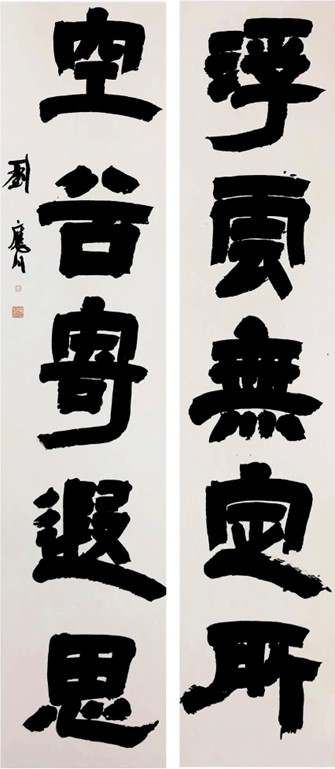 浮雲無定所
空谷寄遐思
劉